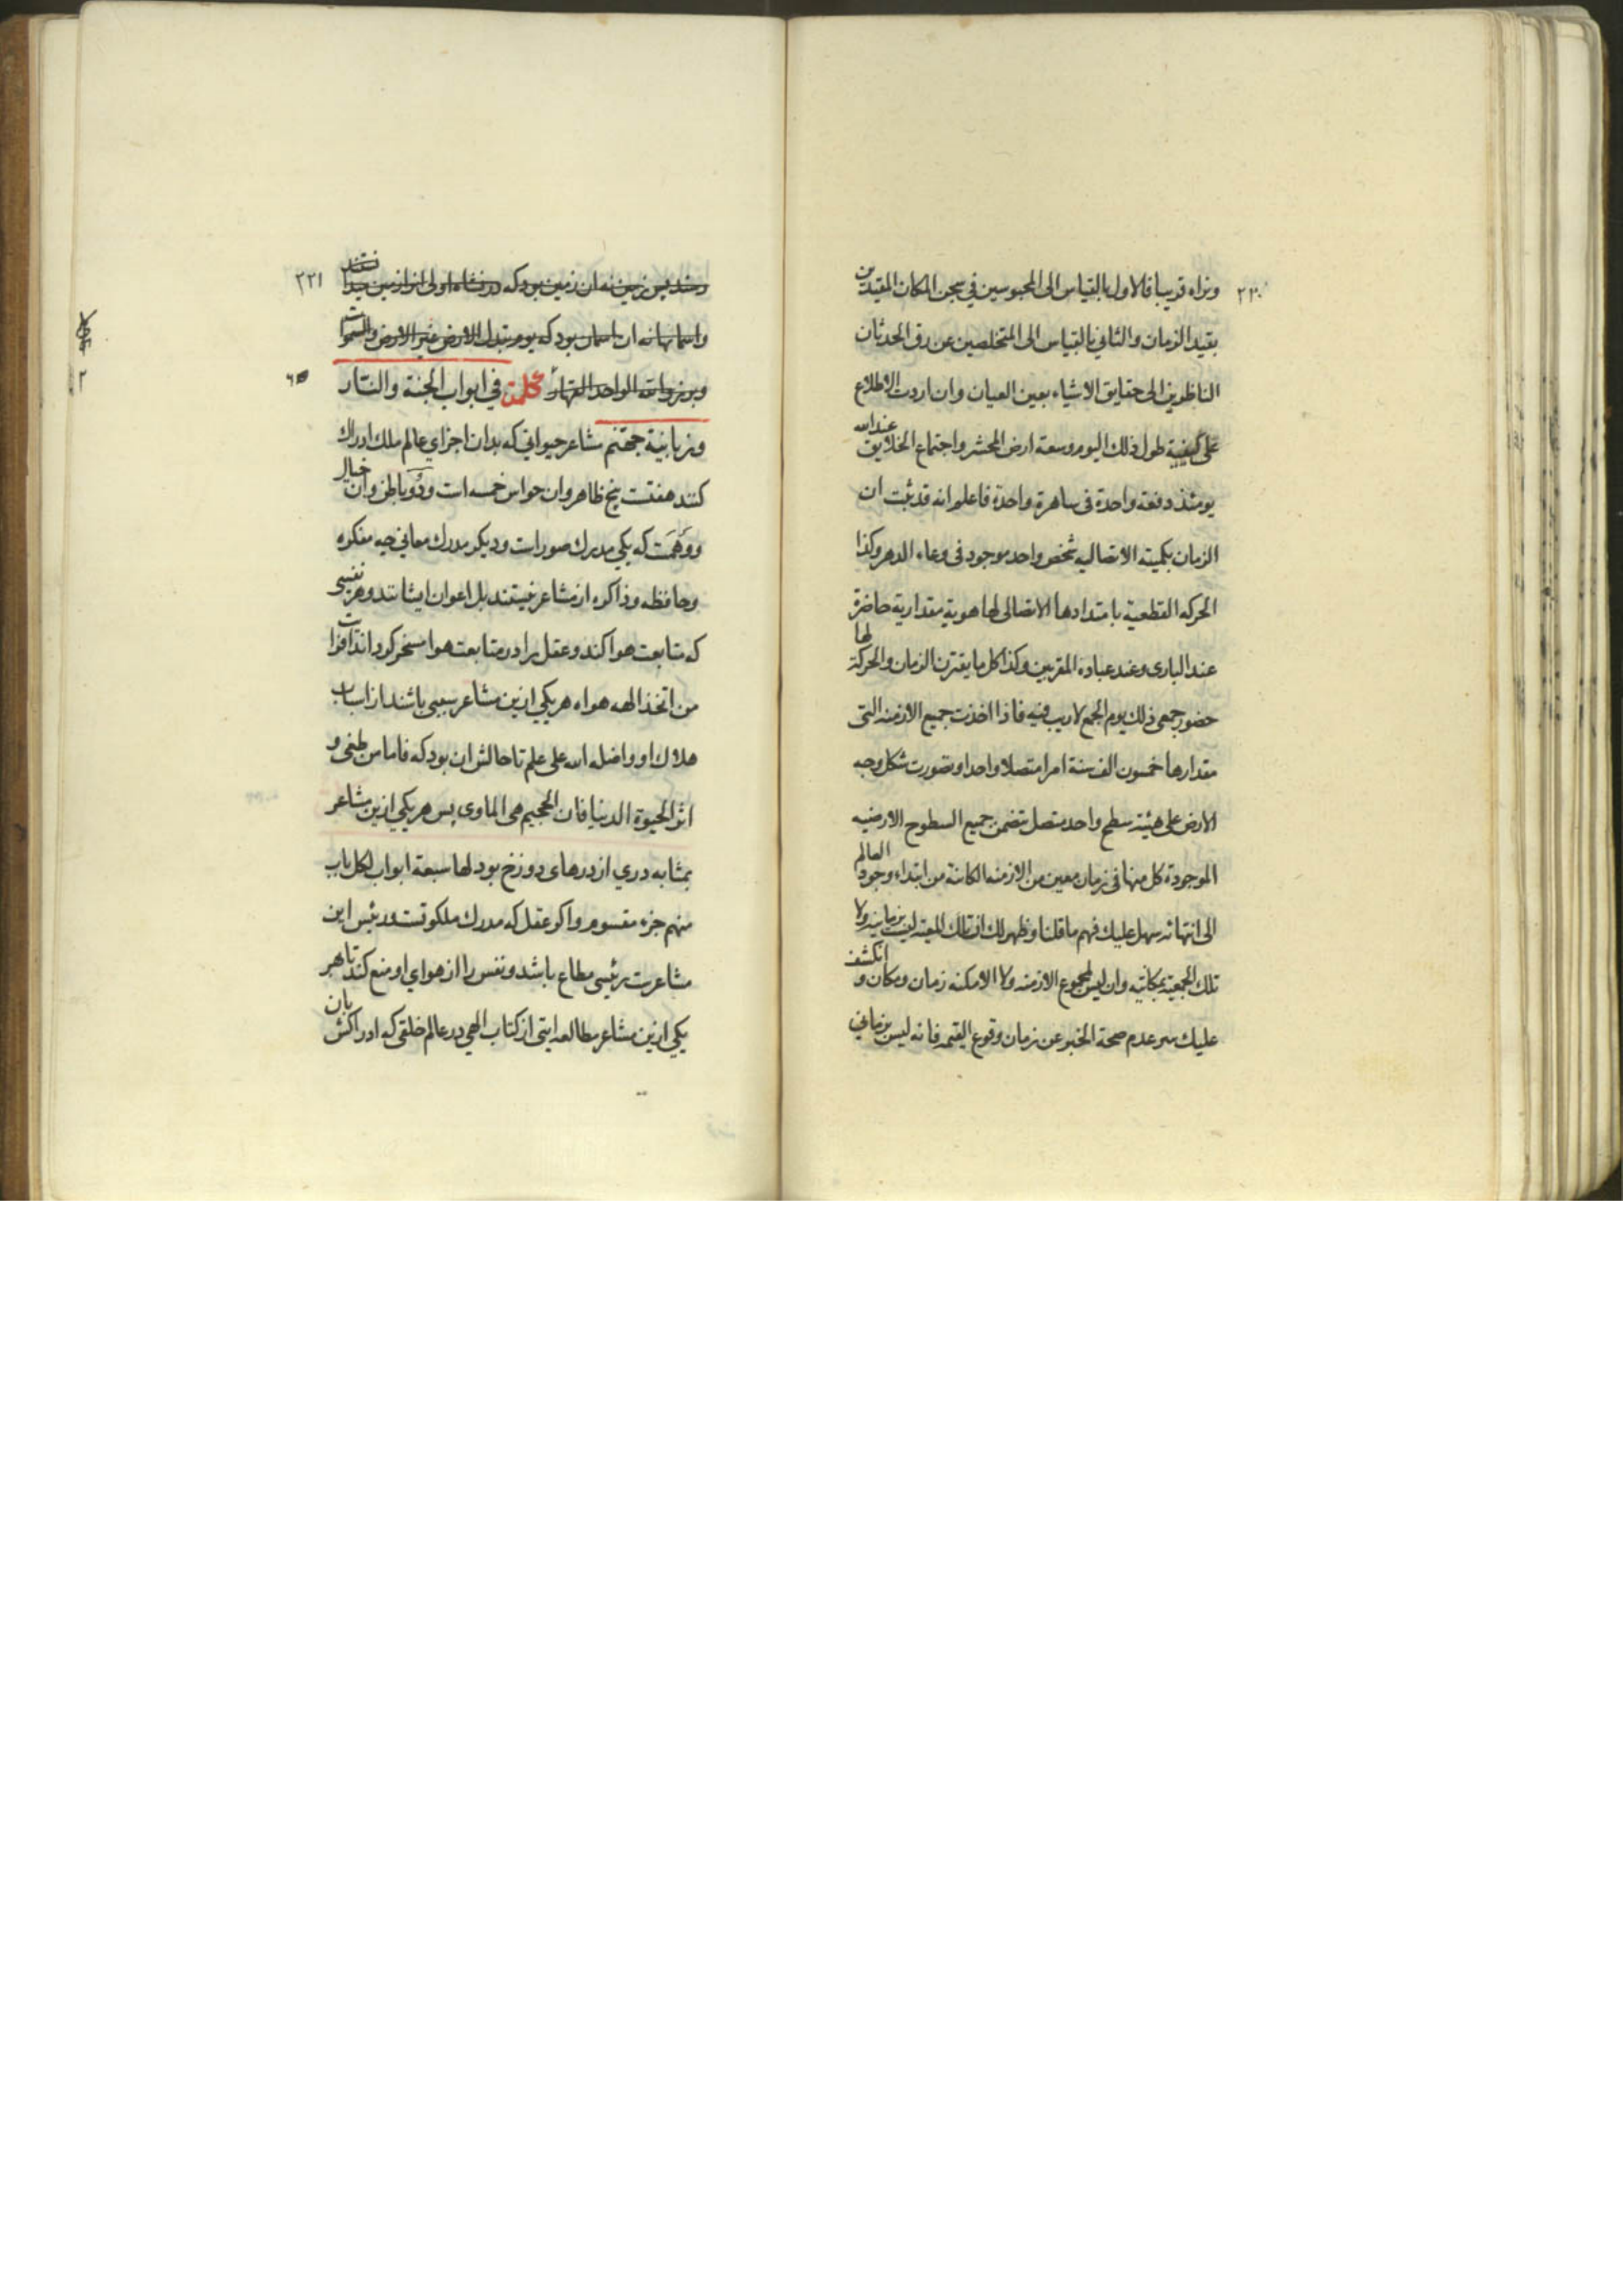 ۲۲۰
ونراه قريبا فالاول بالقياس الى المحبوسين في سجن المكان المقيدين
بقيد الزمان والثاني بالقياس الى المتخلصين عن رق الحدثان
الناظرين الى حقايق الاشياء بعين العيان وان اردت الاطلاع
على كيفية طول ذلك اليوم وسعة ارض المحشر واجتماع الخلايق عند الله
يومئذ دفعة واحدة في ساهرة واحدة فاعلم انه قد ثبت ان
الزمان بكميته الاتصاليه شخص واحد موجود في وعاء الدهر وكذا
الحركه القطعية بامتدادها الاتصالى لها هوية مقدارية حاضرة
عند البارى وعند عباده المقربين وكذا كل ما يقترن الزمان والحركة لها
حضور جمعي ذلك يوم الجمع لا ريب فيه فاذا اخذت جميع الازمنه التى
مقدارها خمسون الف سنة امرا متصلا واحدا وتصورت شكل وجه
الارض على هيئة سطح واحد متصل تضمن جميع السطوح الارضيه
الموجودة كل منها فى زمان معين من الازمنه الكائنة من ابتداء وجود العالم
الى انتهائه سهل عليك فهم ما قلنا وظهر لك ان تلك المعيه ليست بزمانيه ولا
تلك الجمعية بمكانيه وان ليس لمجموع الازمنه ولا الامكنه زمان ومكان و انكشف
عليك سر عدم صحة الخبر عن زمان وقوع القيمه فانه ليس بزماني
۲۲۱
پس زمين نه ان زمين بود كه در نشاه اولى
واسمانها نه ان اسمان بود كه يوم تبدل الارض غير الارض والسموات
وبرزوا لله الواحد القهار كلمة في ابواب الجنة والنار
وزبانية جهنم مشاعر حيواني كه بدان اجزاي عالم ملك ادراك
كنند هفتست پنج ظاهر وان حواس خمسه است ودو باطن وان خيال
ووهمست كه يكي مدرك صوراست وديكر مدرك معاني چه مفكره
وحافظه وذاكره از مشاعر نيستند بل اعوان ايشانند وهر نفسى
كه متابعت هوا كند وعقل را در متابعت هوا مسخر كرداند افرايت
من اتخذ الهه هواه هر يكي ازين مشاعر سببى باشند از اسباب
هلاك او واضله الله على علم تا حالش ان بود كه فاما من طغى و
اثر الحيوة الدنيا فان الجحيم هى الماوى پس هر يكي ازين مشاعر
بمثابه دري از درهاى دوزخ بود لها سبعة ابواب لكل باب
منهم جزء مقسوم واكر عقل كه مدرك ملكوتست ورئيس اين
مشاعرست رئيسى مطاع باشد ونفس را از هواي او منع كند تا هر
يكي ازين مشاعر مطالعه ايتى از كتاب الهي در عالم خلقى كه ادراكش بان